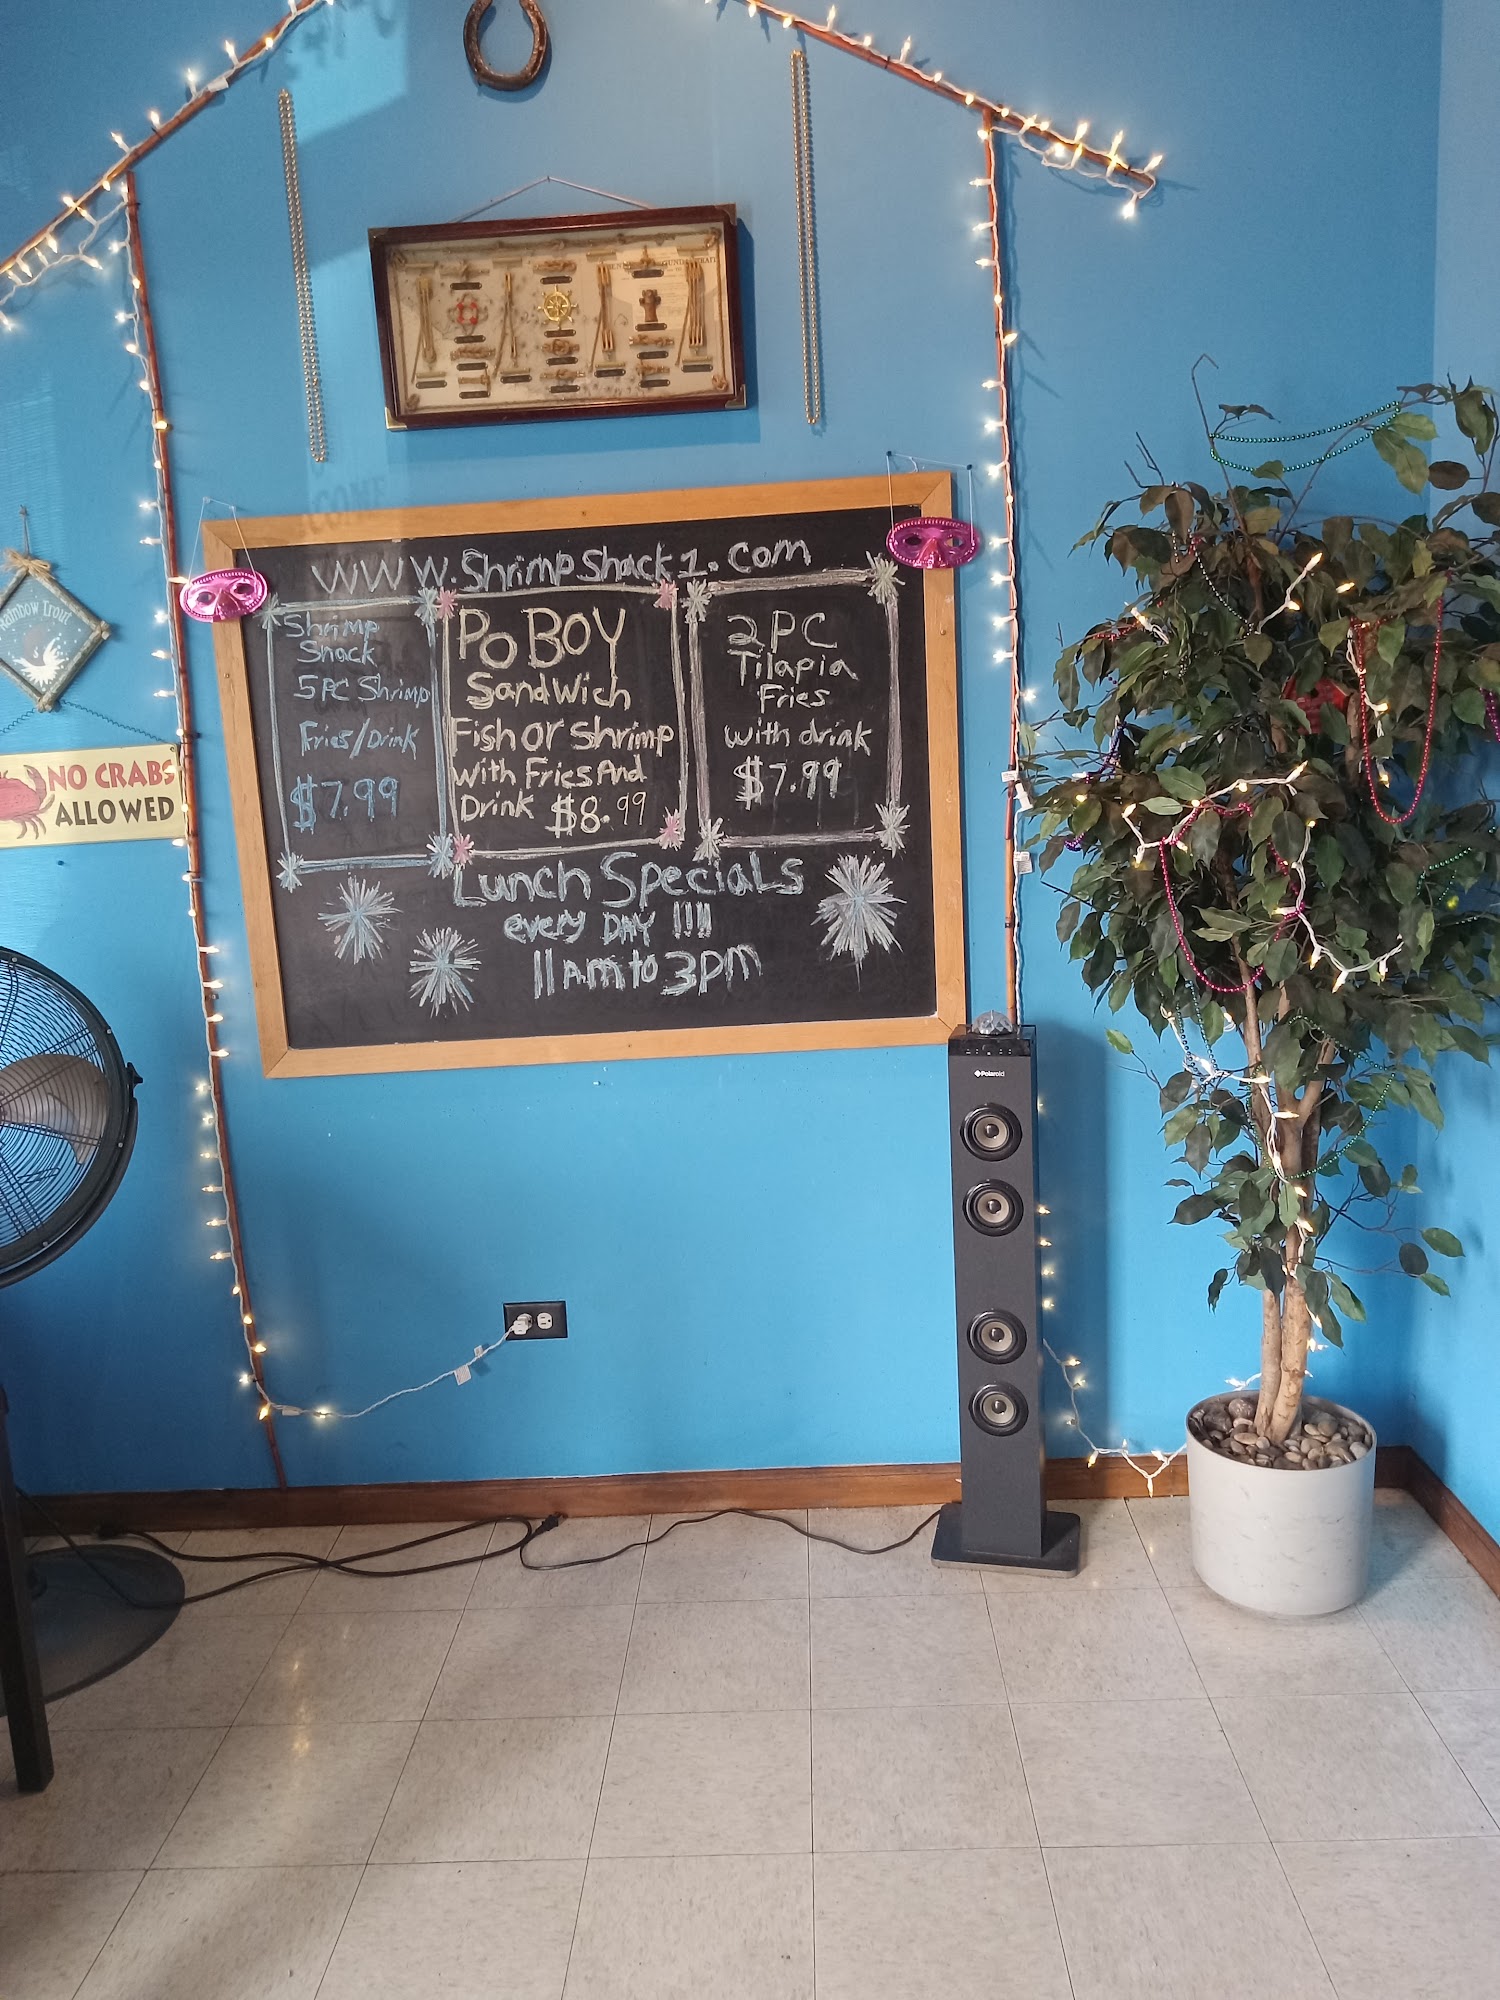 www.ShrimpShack1.com
Shrimp
Shack
5PC Shrimp
Fries/Drink
$7.99
PO BOY
Sandwich
Fish or Shrimp
with Fries And
Drink $8.99
2PC
Tilapia
Fries
with drink
$7.99
Lunch Specials
every DAY !!!!
11am to 3pm
Rainbow Trout
NO CRABS
ALLOWED
Polaroid